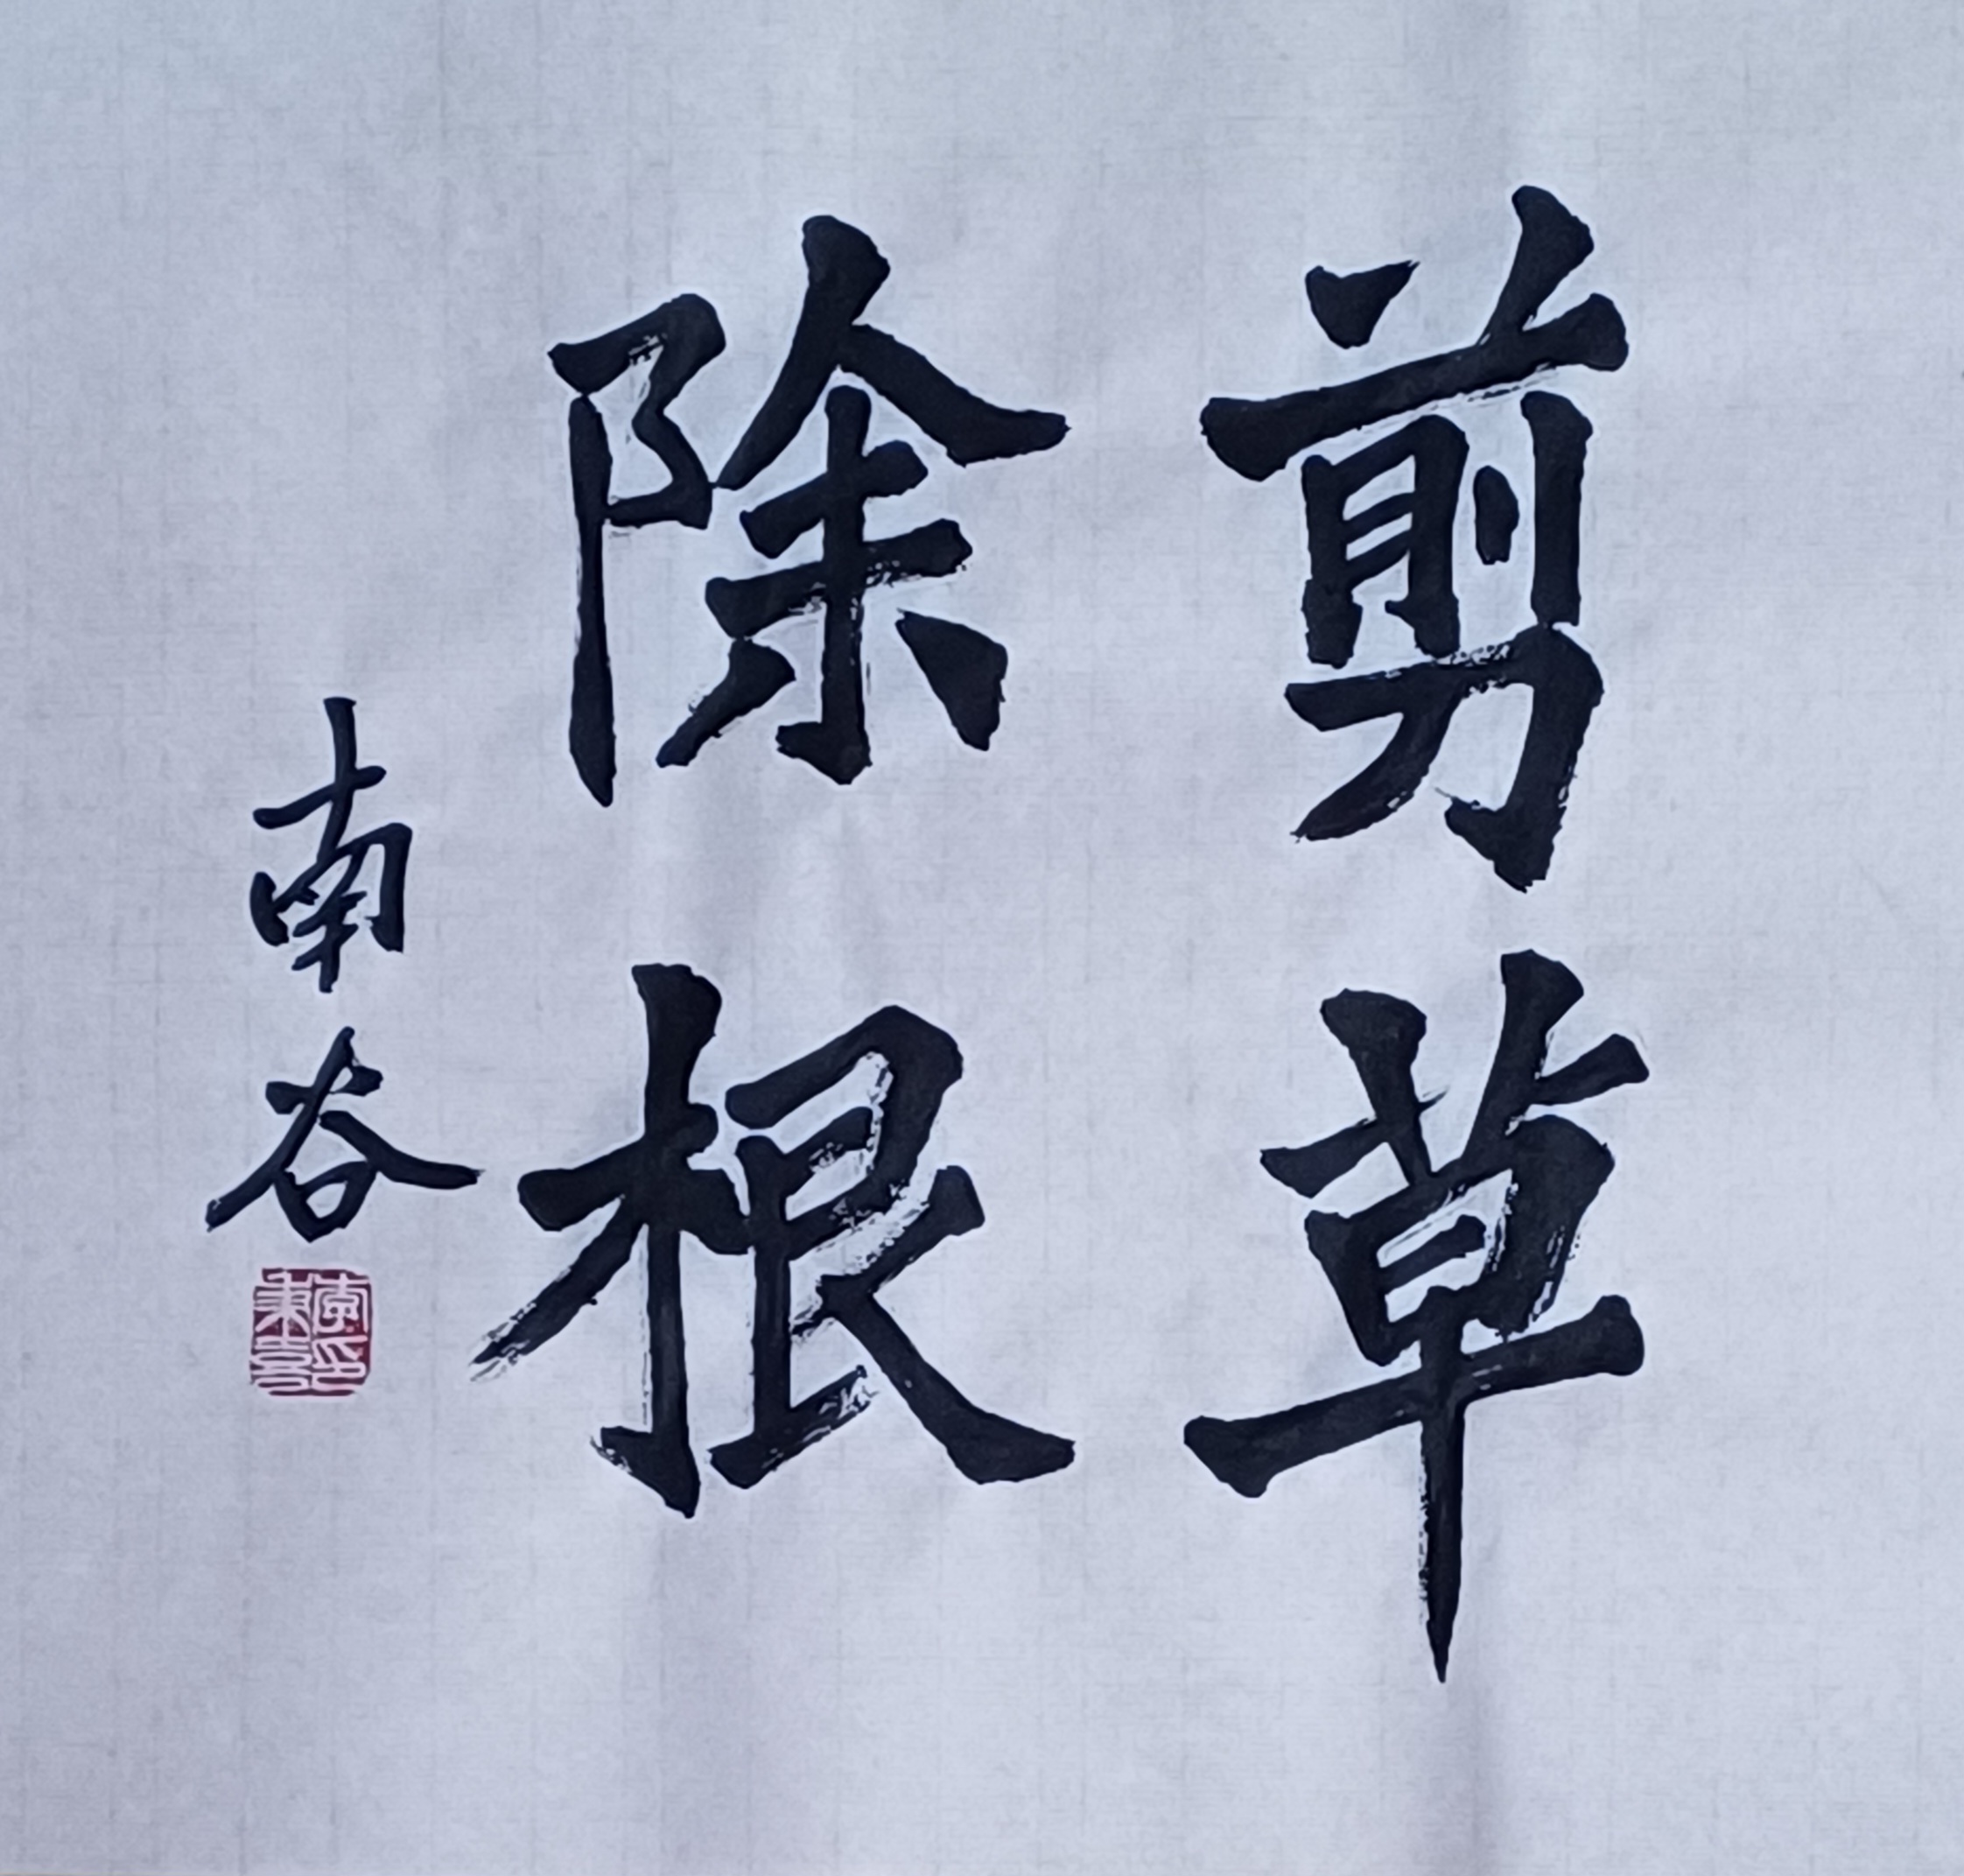 剪草
除根
南谷